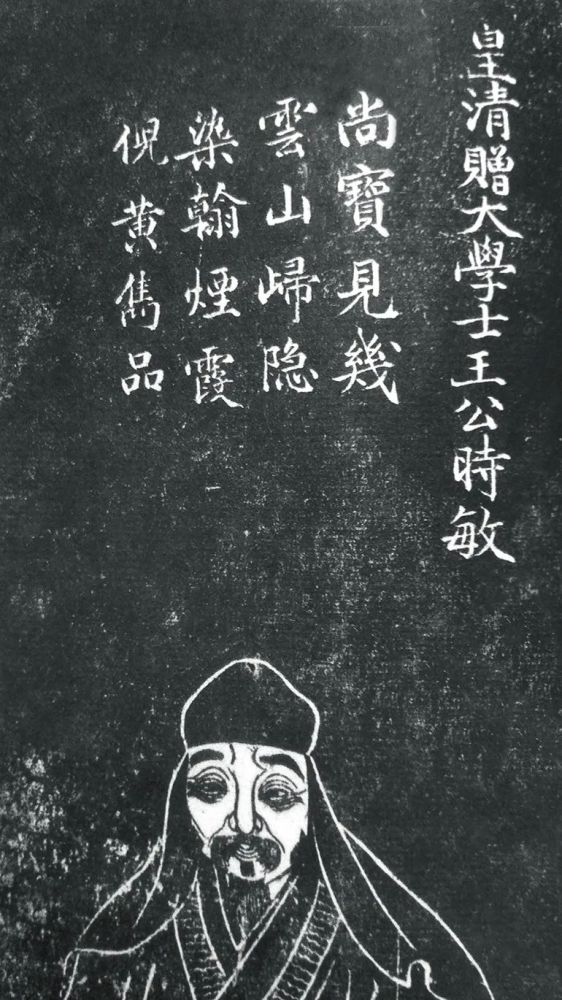 皇清贈大學士王公時敏
尚寶見幾
雲山歸隐
染翰煙霞
倪黄雋品